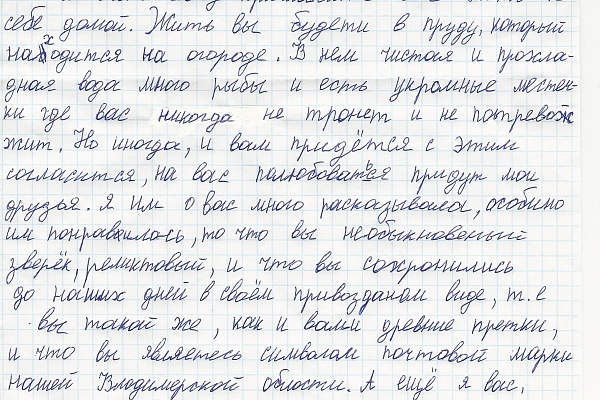 себе домой. Жить вы будете в пруду, который
находится на огороде. В нем чистая и прохла-
дная вода много рыбы и есть укромные местеч-
ки где вас никогда не тронет и не потревож
жит. Но иногда, и вам придётся с этим
согласится, на вас полюбоваться придут мои
друзья. Я им о вас много рассказывала, особино
им понравилось, то что вы необыкновеный
зверёк, реликтовый, и что вы сохронились
до наших дней в своём привозданом виде, т.е
вы такой же, как и вами древние претки,
и что вы являетесь символом почтовой марки
нашей Влодимерской области. А ещё я вас,